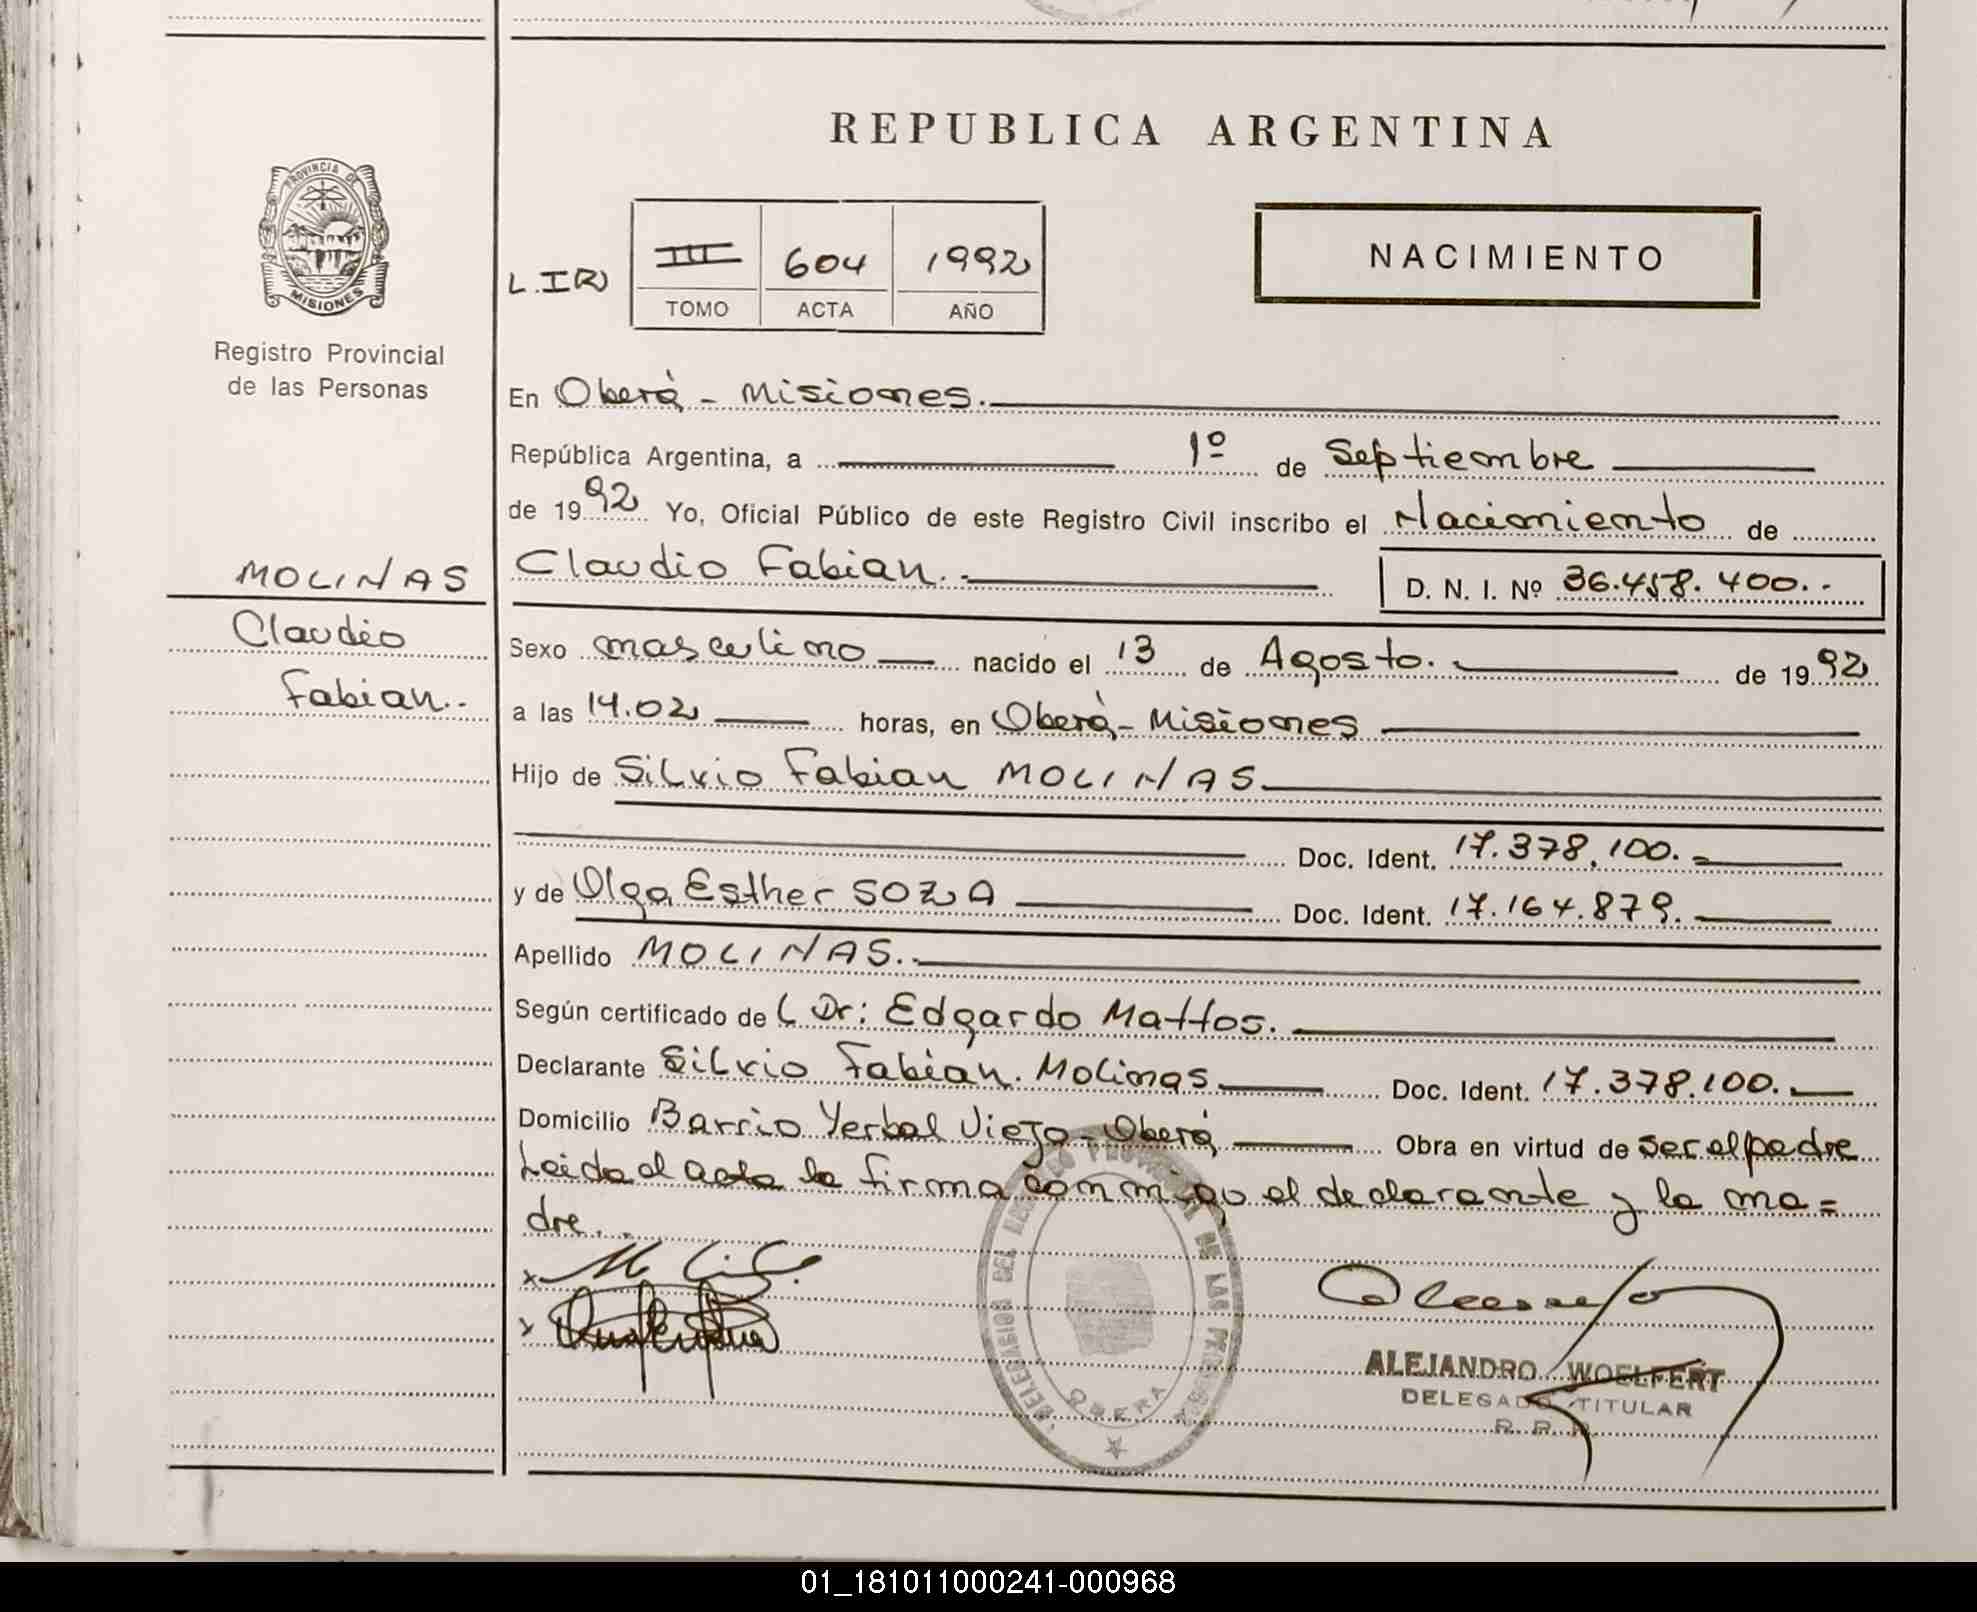 REPUBLICA ARGENTINA
PROVINCIA DE
MISIONES
Registro Provincial
de las Personas
L.I(R)
III 604 1992
TOMO ACTA AÑO
NACIMIENTO
En Oberá - Misiones.
República Argentina, a 1º de Septiembre
de 1992 Yo, Oficial Público de este Registro Civil inscribo el Nacimiento de
MOLINAS
Claudio
Fabian.-
Claudio Fabian.- D. N. I. Nº 36.458.400.-
Sexo masculino nacido el 13 de Agosto. de 1992
a las 14.02 horas, en Oberá - Misiones
Hijo de Silvio Fabian MOLINAS
Doc. Ident. 17.378.100.-
y de Olga Esther SOZA Doc. Ident. 17.164.879.
Apellido MOLINAS.-
Según certificado de l Dr: Edgardo Mattos.
Declarante Silvio Fabian. Molinas Doc. Ident. 17.378.100.
Domicilio Barrio Yerbal Viejo - Oberá Obra en virtud de ser el padre
Leida el acta la firma conmigo el declarante y la ma=
dre.
x
x
DELEGACION DEL REGISTRO PROVINCIAL DE LAS PERSONAS
OBERA
ALEJANDRO WOELFERT
DELEGADO TITULAR
R. R. P.
01_181011000241-000968